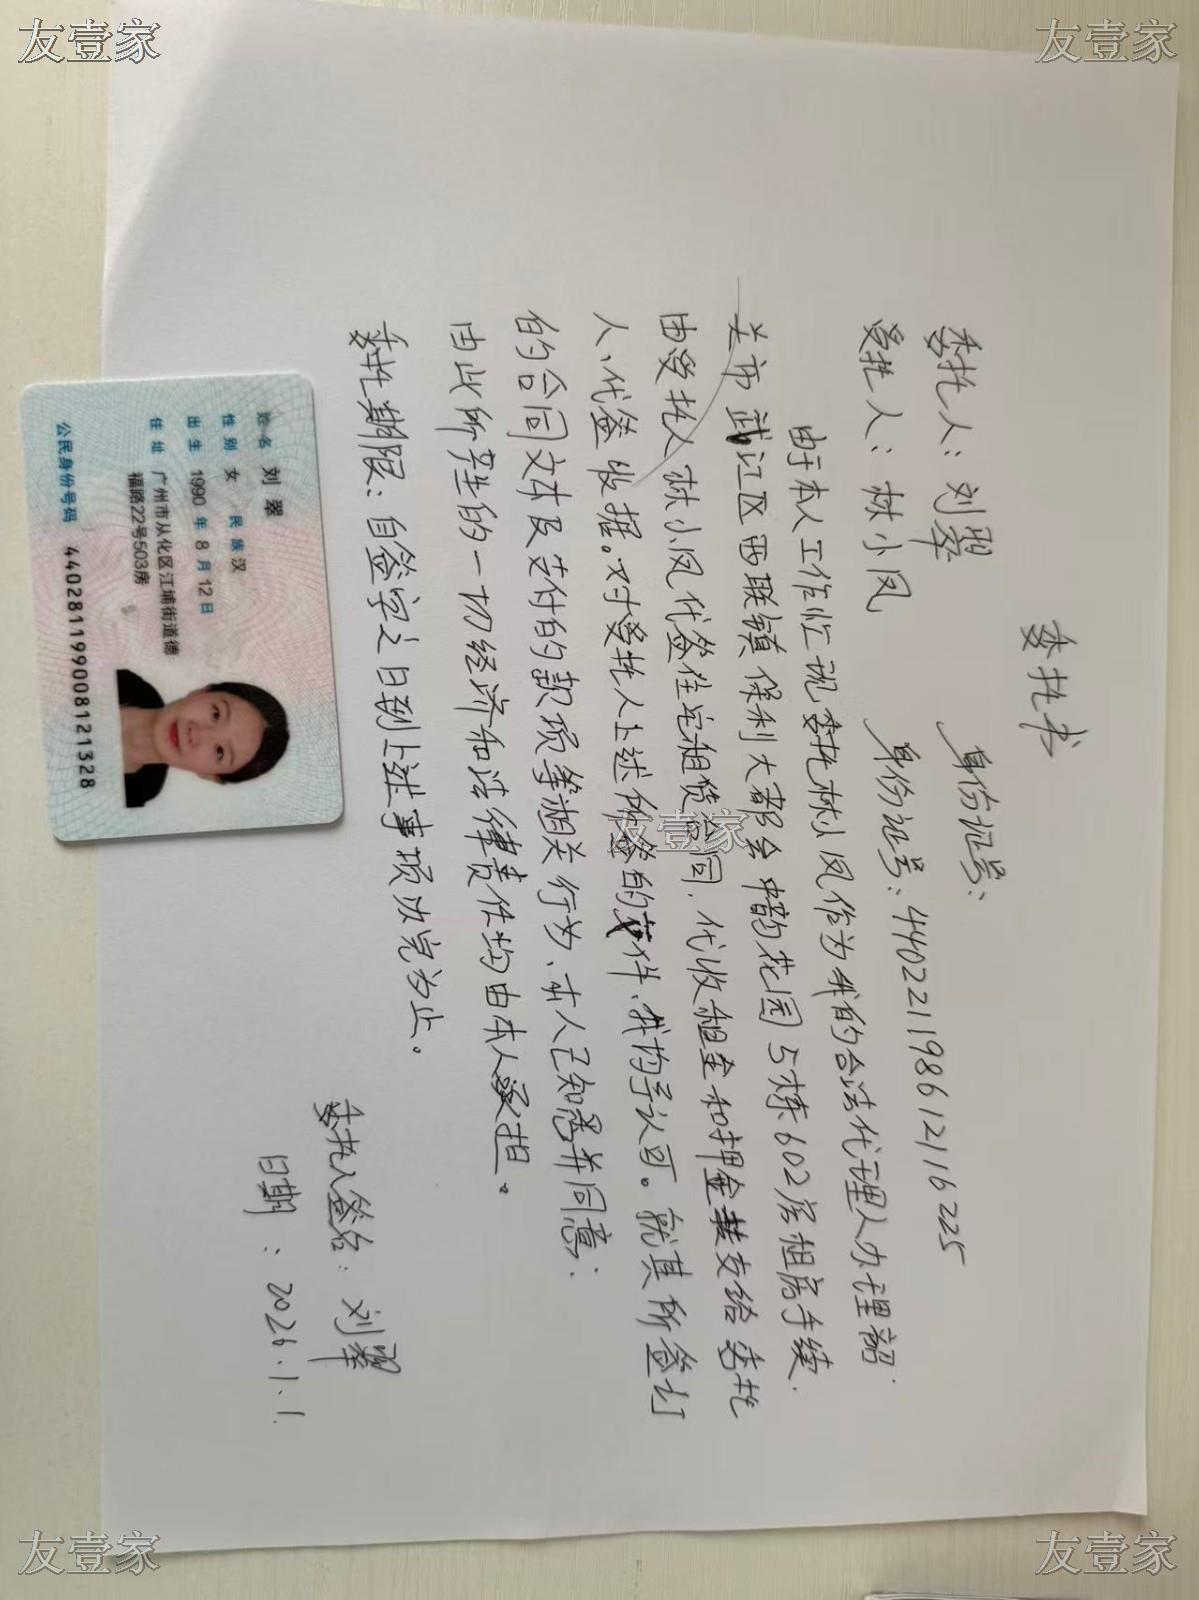 友壹家
友壹家
委托书
委托人：刘翠 身份证号：
受托人：林小凤 身份证号：440221198612116225
由于本人工作忙现委托林小凤作为我的合法代理人办理韶
关市武江区西联镇保利大都会中韵花园5栋602房租房手续.
由受托人林小凤代签住宅租赁合同，代收租金和押金转支给委托
人、代签收据。对受托人上述所签的文件、我均予认可。就其所签订
的合同文本及支付的款项等相关行为、本人已知悉并同意；
由此所产生的一切经济和法律责任均由本人承担。
委托期限：自签字之日到上述事项办完为止。
委托人签名：刘翠
日期：2026.1.1.
友壹家
姓名 刘翠
性别 女 民族 汉
出生 1990 年 8 月 12 日
住址 广州市从化区江埔街道德
福路22号503房
公民身份号码 440281199008121328
友壹家
友壹家